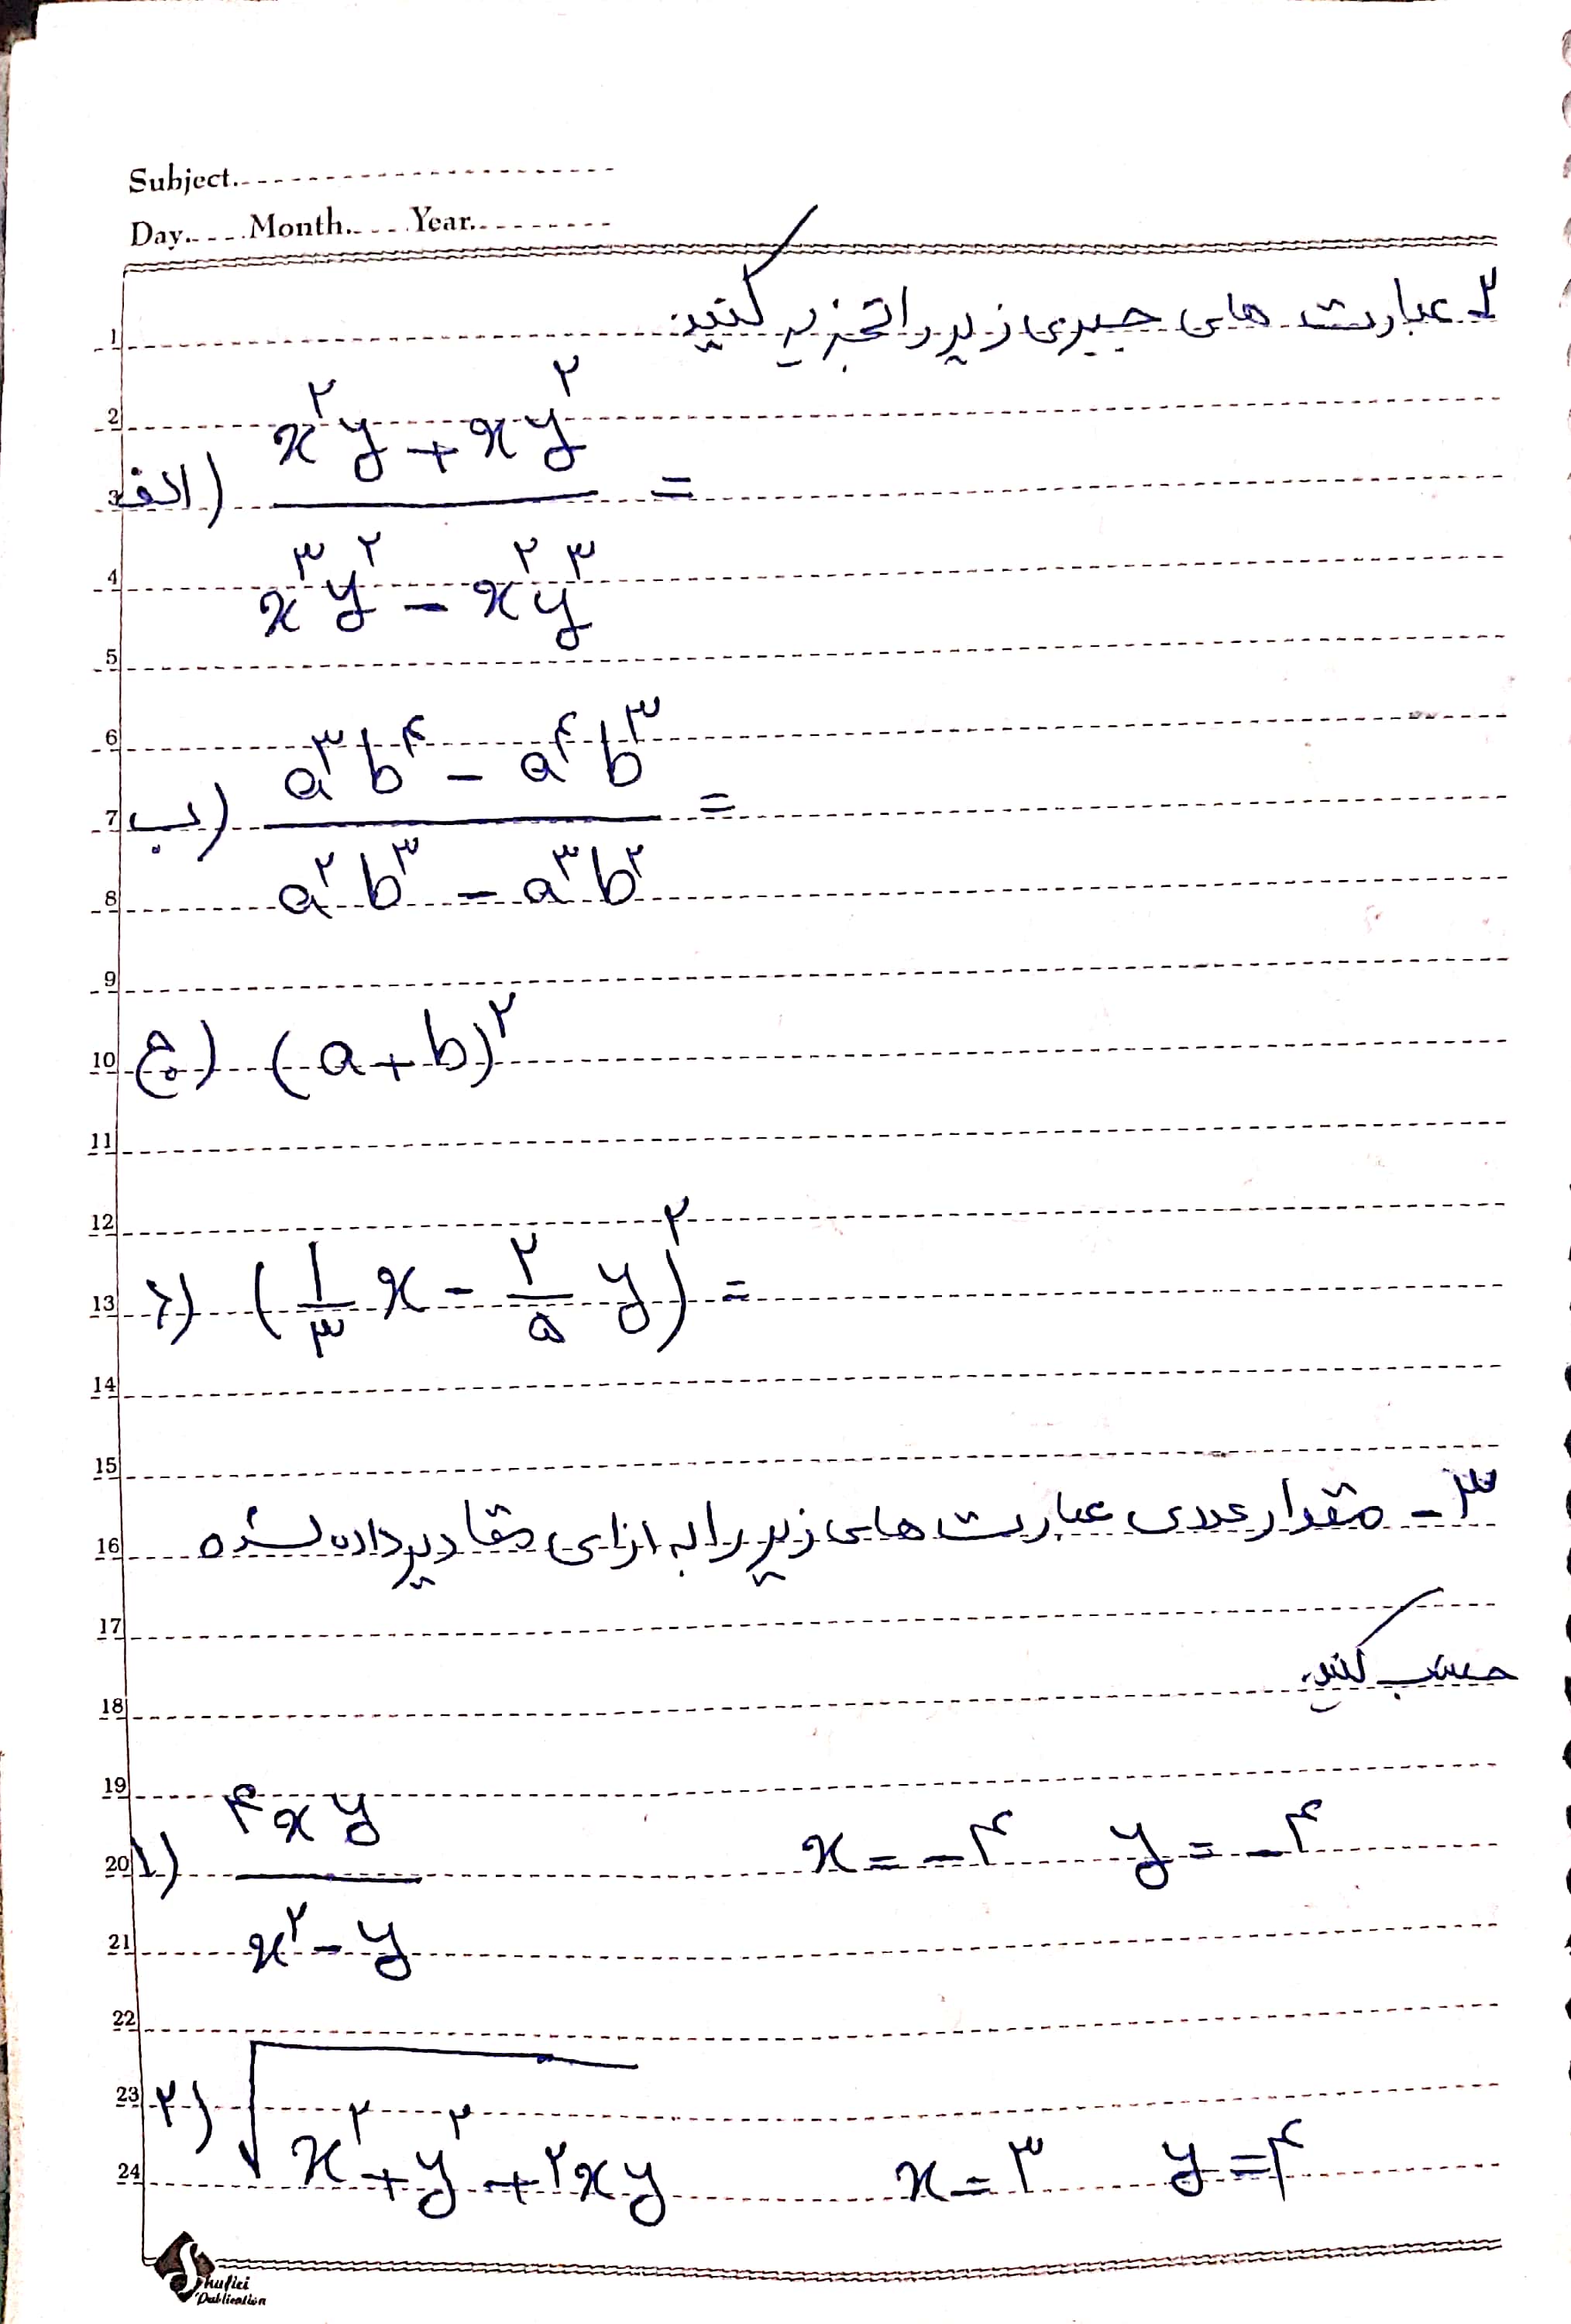 Subject.
Day. Month. Year.
۲- عبارت های جبری زیر را تجزیه کنید.
الف) (x²y + xy²) / (x³y² - x²y³) =
ب) (a³b⁴ - a⁴b³) / (a²b³ - a³b²) =
ج) (a+b)²
د) (۱/۳ x - ۲/۵ y)² =
۳- مقدار عددی عبارت های زیر را به ازای مقادیر داده شده
حساب کنید.
۱) ۴xy / (x² - y) x = -۴ y = -۴
۲) √(x² + y² + ۲xy) x = ۳ y = ۴
1
2
3
4
5
6
7
8
9
10
11
12
13
14
15
16
17
18
19
20
21
22
23
24
Shafiei
Publication